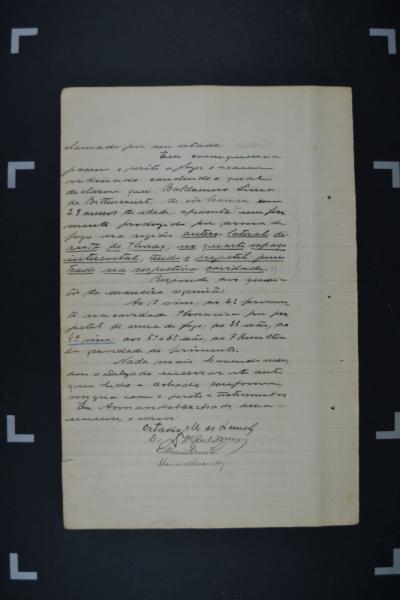 clamado por seu estado
Em consequencia
passou o perito a fazer o exame
declarou que Balduino Lima
de Bittencourt, de côr branca com
23 annos de edade apresenta um feri
mento produzido por arma de
fogo na região antero-lateral di-
reita do thorax, no quarto espaço
intercostal, tendo o projectil pene
trado na respectiva cavidade.
Responde aos quesi-
tos da maneira seguinte:
Ao 1º sim, ao 2º ferimen
to na cavidade thoraxica por pro
jectil de arma de fogo; ao 3º não, ao
4º sim; aos 5º e 6º não, ao 7º
da gravidade do ferimento.
Nada mais havendo man
dou o Delegado encerrar este auto
que lido e achado conforme
assigna com o perito e testemunhas
Eu, Armando Machado,
o escrevi
Octavio M. de Lemos